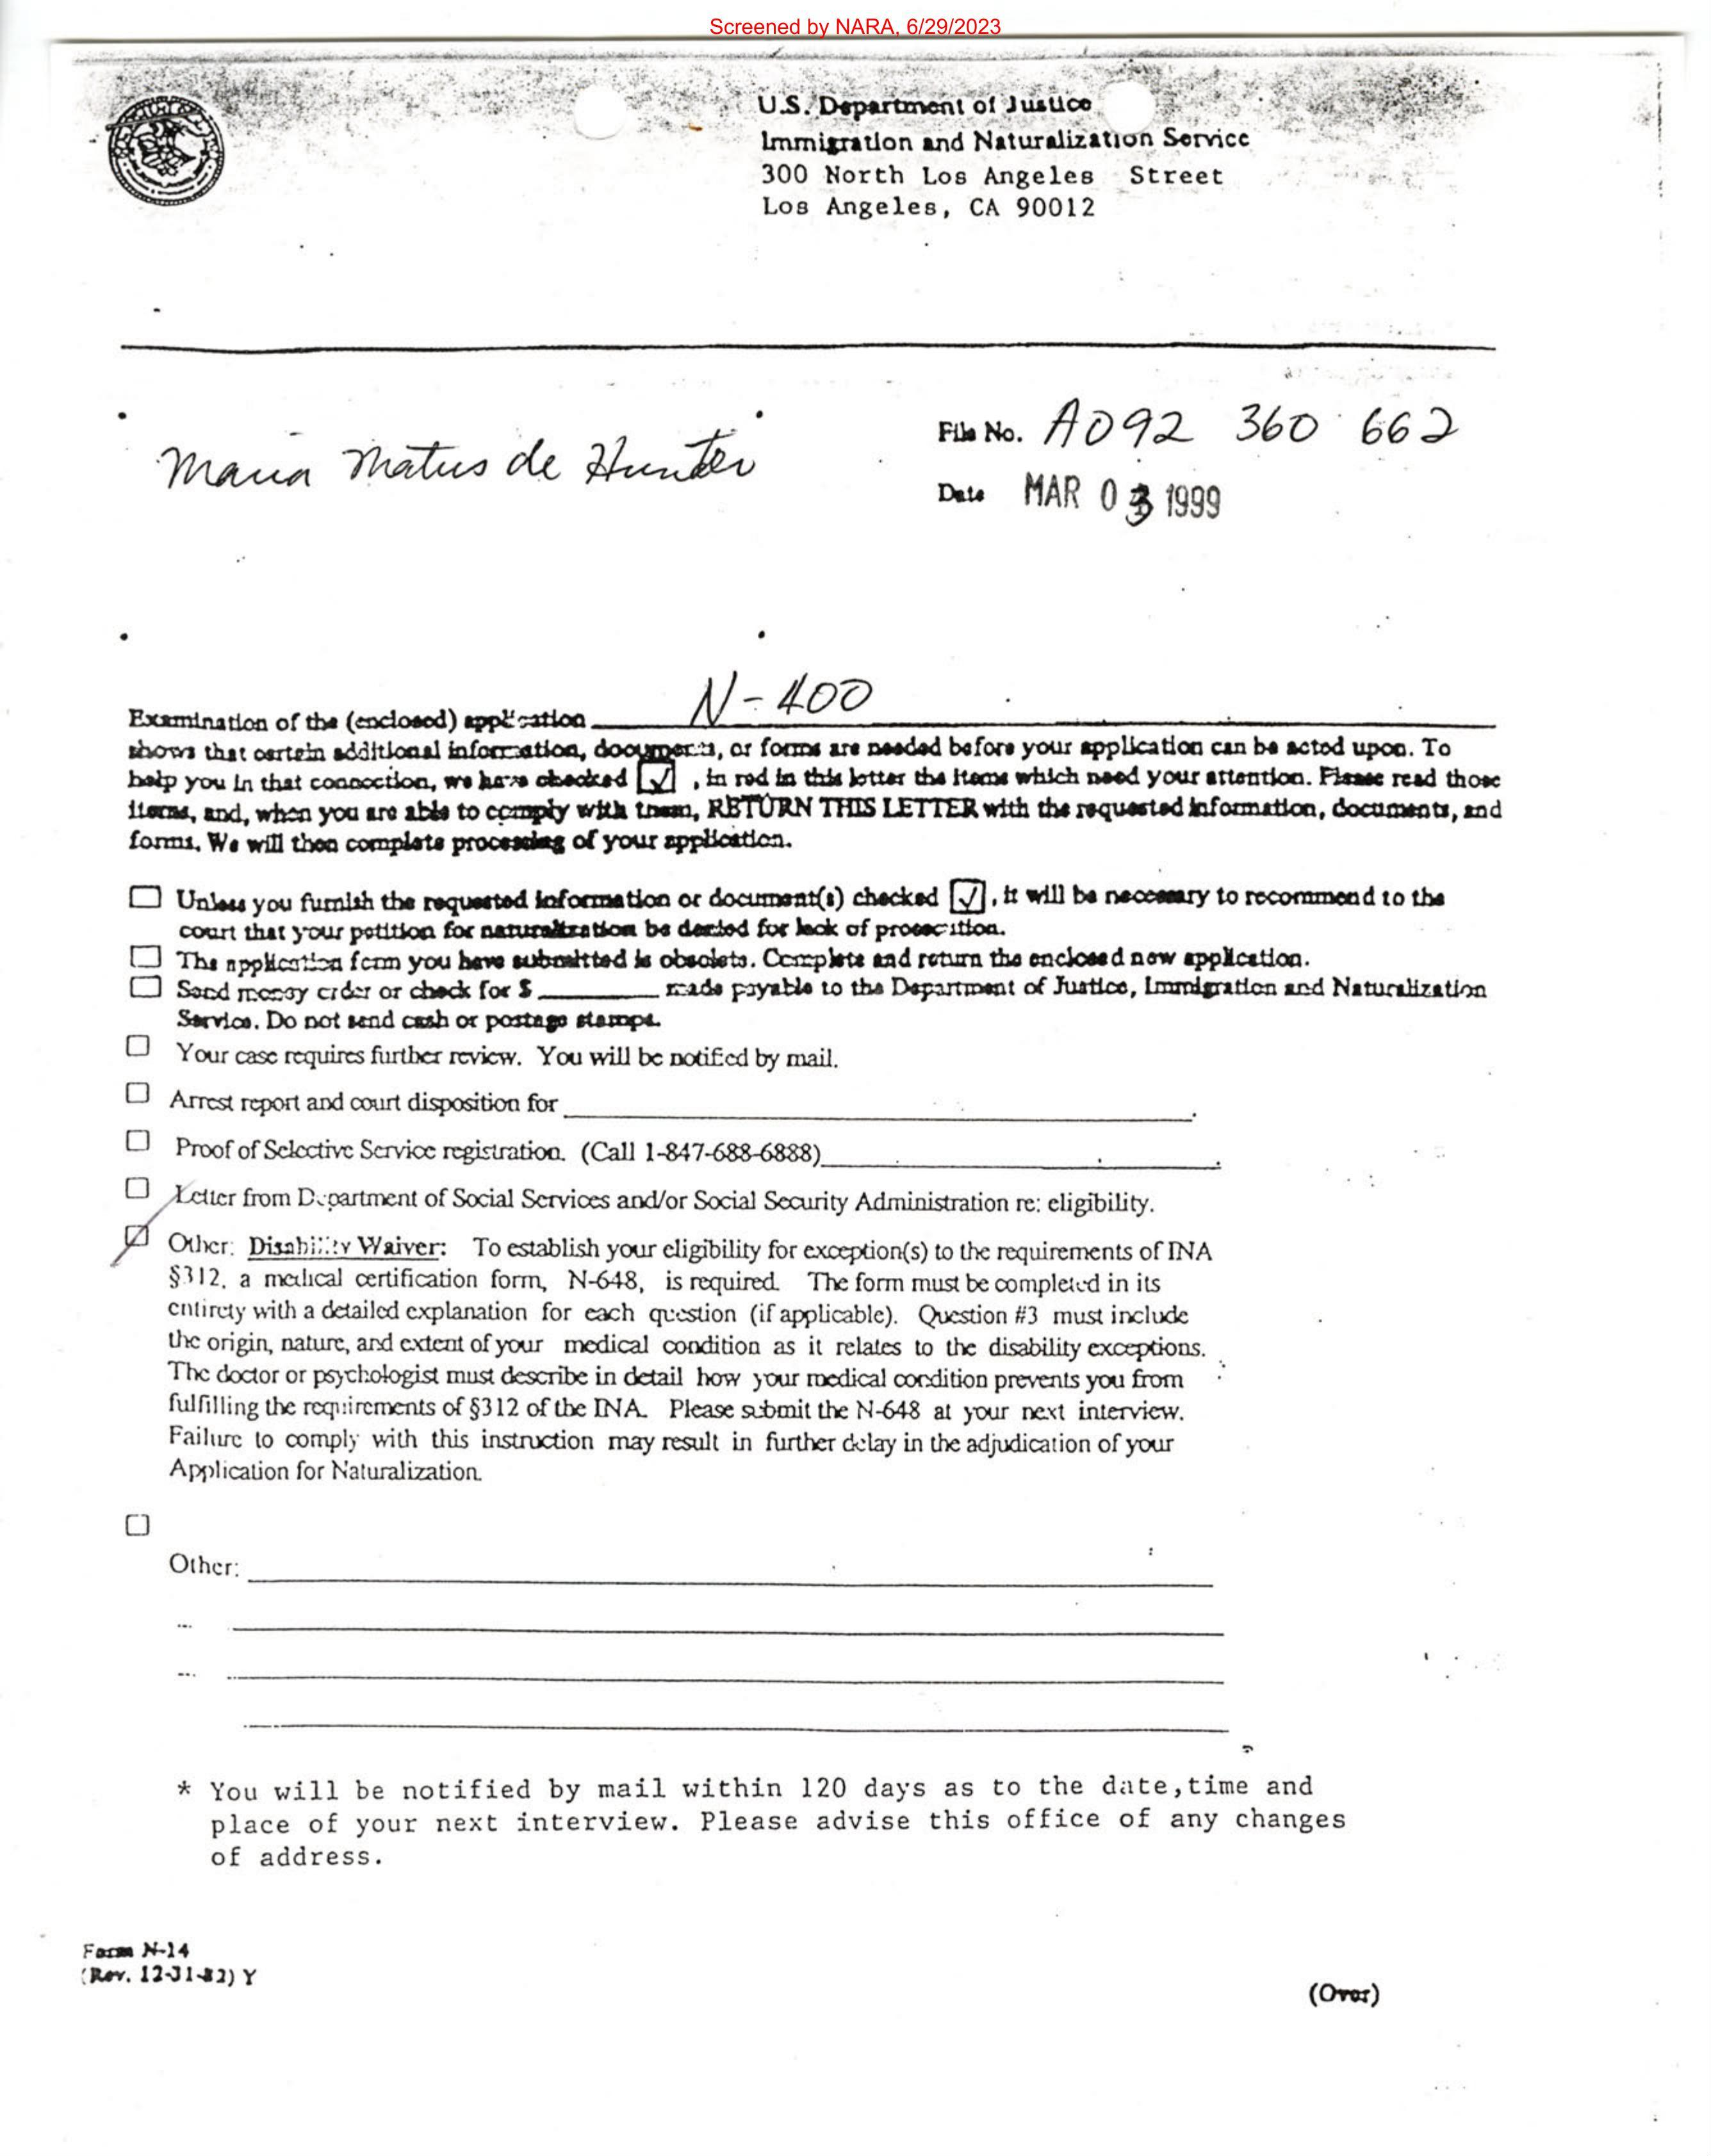 Screened by NARA, 6/29/2023
U.S. Department of Justice
Immigration and Naturalization Service
300 North Los Angeles Street
Los Angeles, CA 90012
Maria Matus de Hunter
File No. A092 360 662
Date MAR 03 1999
Examination of the (enclosed) application N-400
shows that certain additional information, documents, or forms are needed before your application can be acted upon. To
help you in that connection, we have checked ☑, in red in this letter the items which need your attention. Please read those
items, and, when you are able to comply with them, RETURN THIS LETTER with the requested information, documents, and
forms. We will then complete processing of your application.
☐ Unless you furnish the requested information or document(s) checked ☑, it will be necessary to recommend to the
court that your petition for naturalization be denied for lack of prosecution.
☐ The application form you have submitted is obsolete. Complete and return the enclosed new application.
☐ Send money order or check for $ ________ made payable to the Department of Justice, Immigration and Naturalization
Service. Do not send cash or postage stamps.
☐ Your case requires further review. You will be notified by mail.
☐ Arrest report and court disposition for ________.
☐ Proof of Selective Service registration. (Call 1-847-688-6888)________.
☐ Letter from Department of Social Services and/or Social Security Administration re: eligibility.
☑ Other: Disability Waiver: To establish your eligibility for exception(s) to the requirements of INA
§312, a medical certification form, N-648, is required. The form must be completed in its
entirety with a detailed explanation for each question (if applicable). Question #3 must include
the origin, nature, and extent of your medical condition as it relates to the disability exceptions.
The doctor or psychologist must describe in detail how your medical condition prevents you from
fulfilling the requirements of §312 of the INA. Please submit the N-648 at your next interview.
Failure to comply with this instruction may result in further delay in the adjudication of your
Application for Naturalization.
☐
Other: ________
* You will be notified by mail within 120 days as to the date,time and
place of your next interview. Please advise this office of any changes
of address.
Form N-14
(Rev. 12-31-82) Y
(Over)